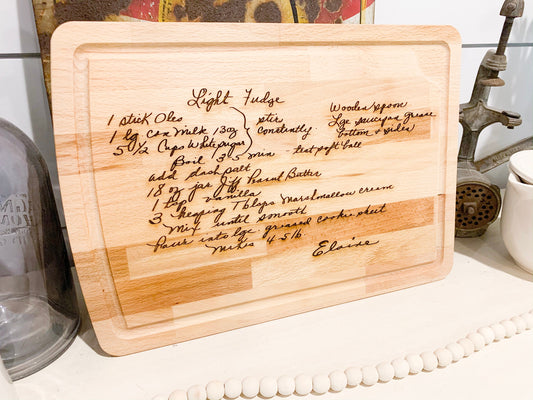 Light Fudge
1 stick Oleo
1 lg can milk 13oz
5 1/2 Cups White sugar
stir
constantly
Wooden spoon
Lge saucepan grease
bottom & sides
Boil 3-5 min - test soft ball
add dash salt
18 oz jar Jif Peanut Butter
1 tsp vanilla
3 heaping Tblsps Marshmallow cream
Mix until smooth
Pour into lge. greased cookie sheet
Makes 4-5 lb
Eloise